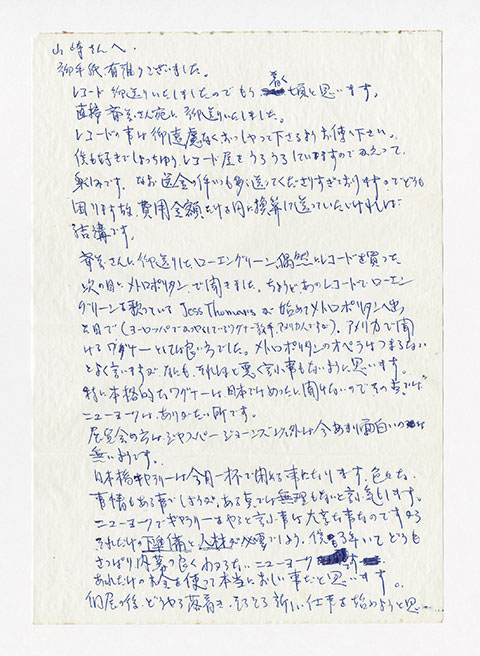 山崎さんへ.
御手紙有難うございました。
レコード御送りいたしましたのでもう着く頃と思います。
直接斉藤さん宛に御送りいたしました。
レコードの事は御遠慮なくおっしゃって下さるようお傳え下さい。
僕も好きでしょっちゅうレコード屋をうろうろしていますのでかえって
楽しみです。なお送金の件いつも多く送ってくださりすぎておりますのでどうも
困ります故、費用金額だけを円に換算して送っていただければ
結構です。
斉藤さんに御送りしたローエングリーン、偶然とレコードを買った
次の日にメトロポリタンで聞きました。ちょうどあのレコードでローエン
グリーンを歌っている Jess Thomas が始めてメトロポリタンへ出
る日で(ヨーロッパで アメリカ人ですが)、アメリカで聞
けるワグナーとしては良い方でした。メトロポリタンのオペラはつまらない
とよく言いますが それほど悪く言う事もないように思います。
特に本格的なワグナーは日本ではめったに聞けないのでその点では
ニューヨークはありがたい所です。
展覧会の方はジャスパー ジョーンズ以外は今あまり面白いのは
無いようです。
日本橋ギャラリーは今月一杯で閉める事になります。色々な
事情もある事でしょうが、ある点では無理もないと言う気もします。
ニューヨークでギャラリーをやると言う事は大変な事なのですから
それだけの下準備と人材が必要でしょう。僕 どうも
さっぱり内幕が良くわからない ニューヨーク
あれだけのお金を使って本当におしい事だと思います。
個展の後、どうやら落着き、そろそろ新しい仕事を始めようと思